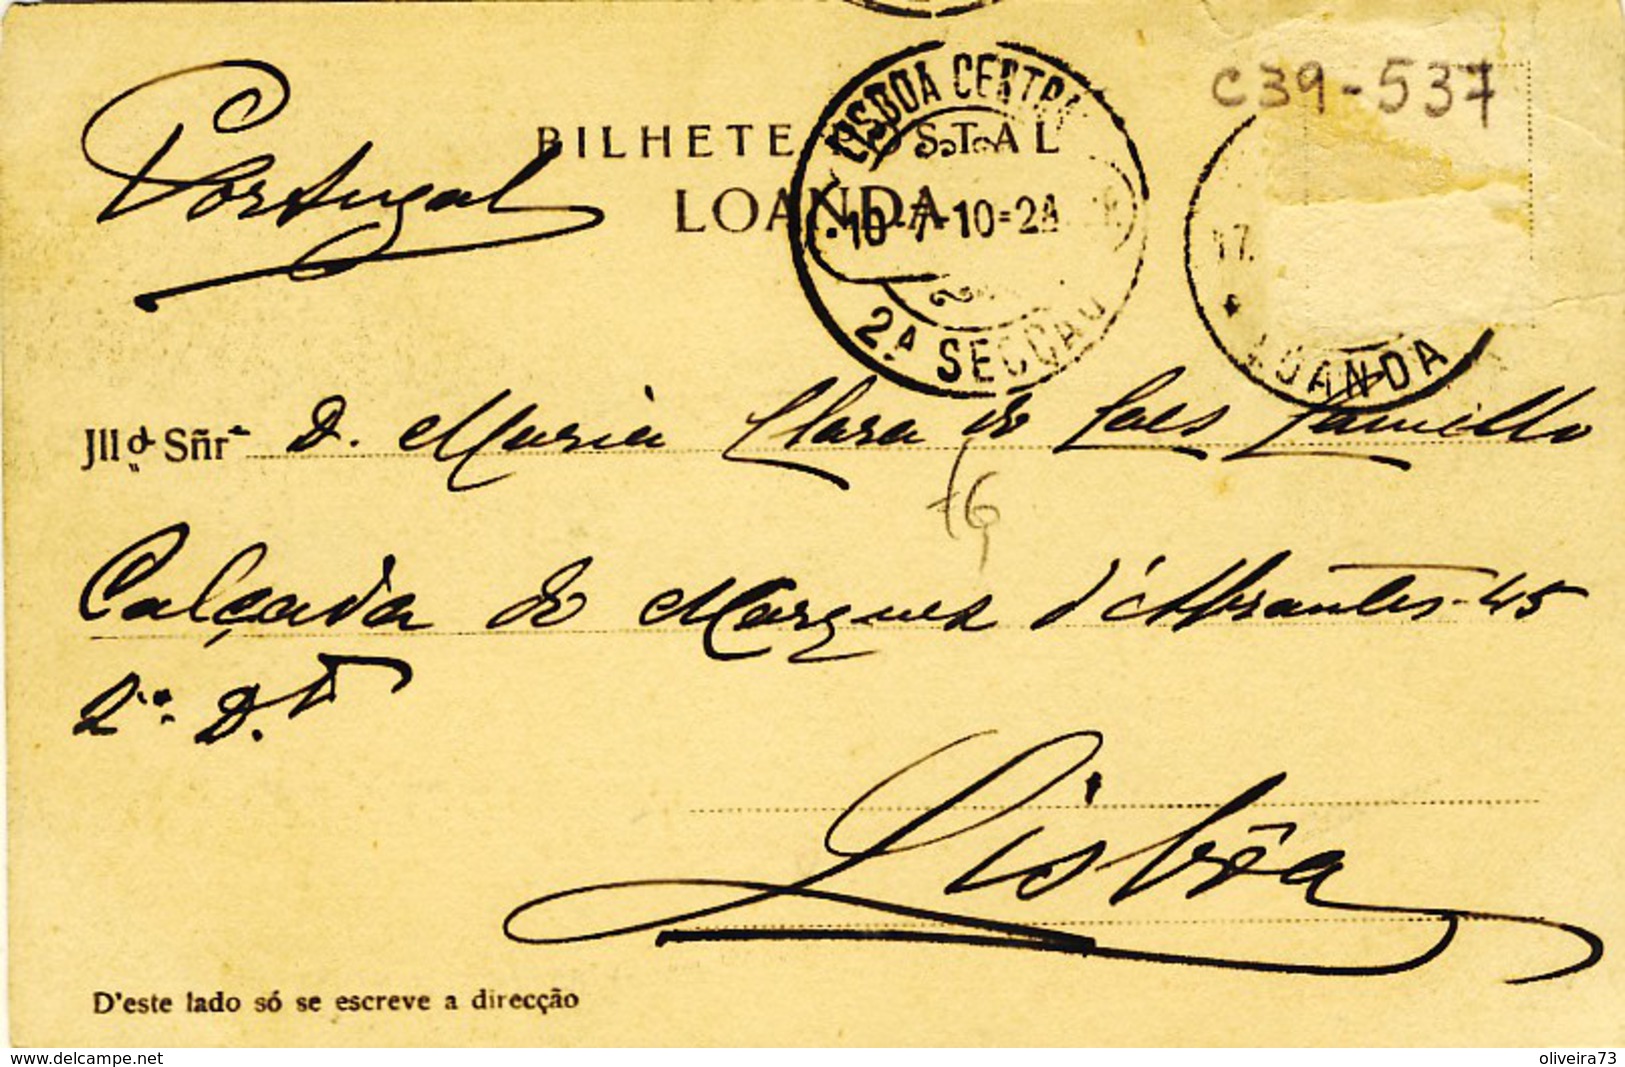 C39-537
BILHETE POSTAL
LOANDA
Portugal
LISBOA CENTRAL
10-7-10=2A
2.A SECÇÃO
17.
LOANDA
Jll.ª Sñrª D. Maria Clara de Caes Camillo
16
Calçada do Marquez d'Abrantes-45
2º. D.to
Lisbôa
D'este lado só se escreve a direcção
www.delcampe.net
oliveira73